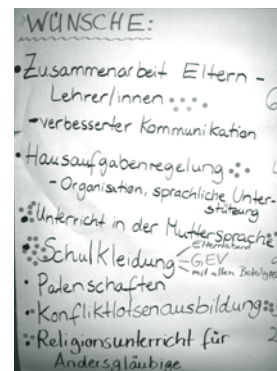 WÜNSCHE:
• Zusammenarbeit Eltern -
Lehrer/innen
- verbesserter Kommunikation
• Hausaufgabenregelung
- Organisation, sprachliche Unter-
stützung
Unterricht in der Muttersprache
Schulkleidung - Elternabend
- GEV
- mit allen
• Patenschaften
• Konfliktlotsenausbildung
Religionsunterricht für
Andersgläubige